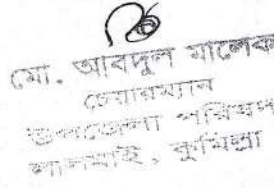 মো. আবদুল মালেক
চেয়ারম্যান
উপজেলা পরিষদ
লালমাই, কুমিল্লা